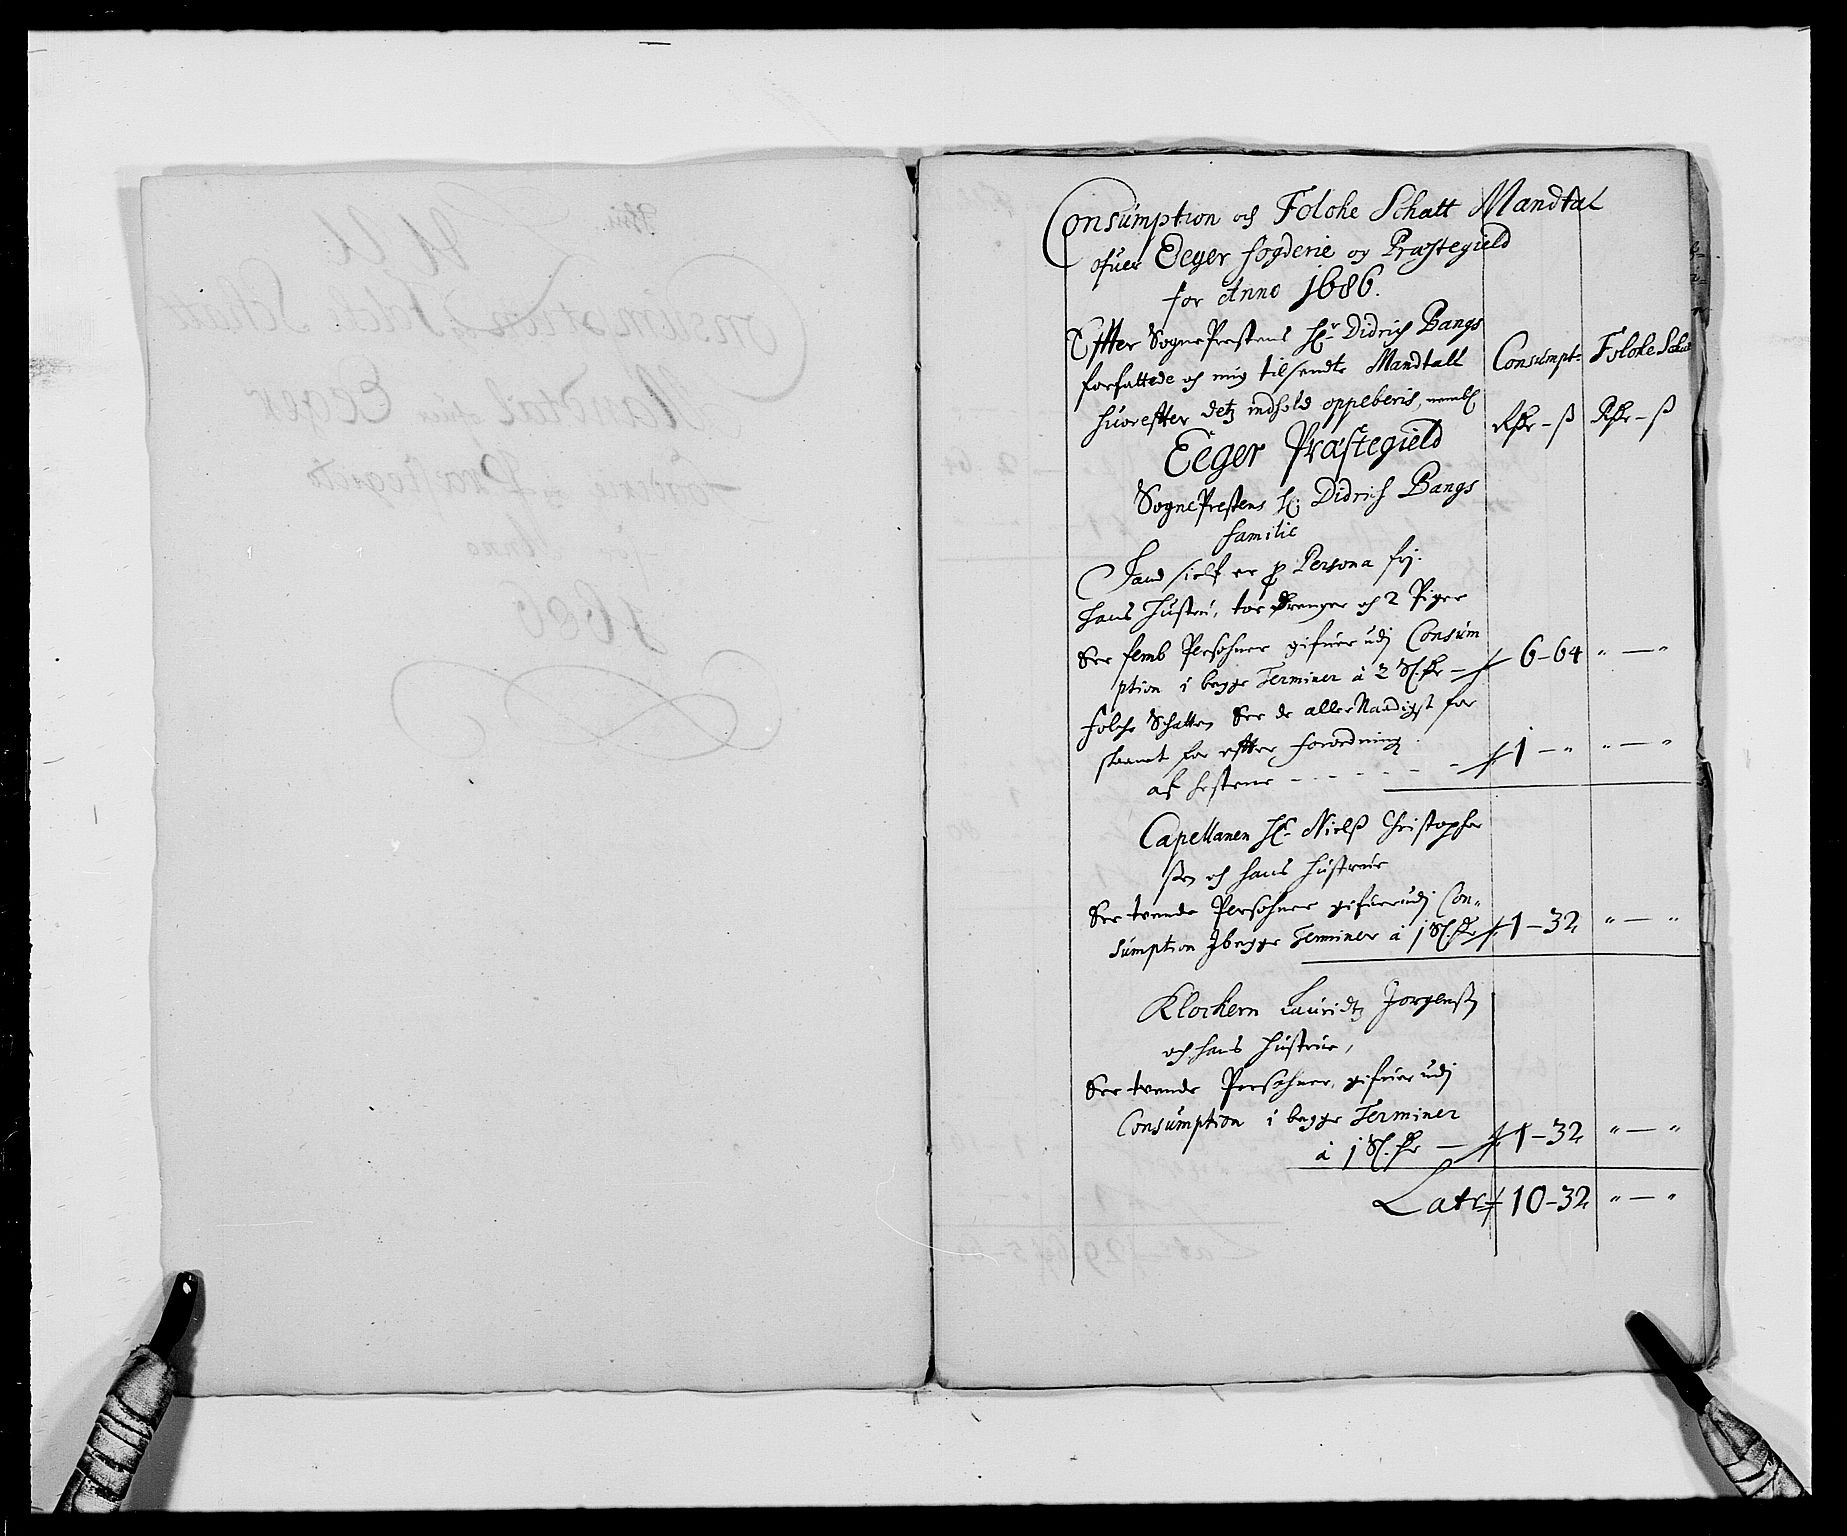 Consumption och Folche Schatt Mandtal
ofuer Eeger fogderie og Præstegield
for Anno 1686.
Effter SognePrestens Hr Didrich Bangs
forfattede och mig tilsendte Mandtall
huorefter detz indhold oppeberis, nembl
Consumpt: Folche Schat
Rdr – ß Rdr – ß
Eeger Præstegield
SognePrestens H: Didrich Bangs
familie
Hand sielf er p Persona frj.
hans Hustru, toe Drenger och 2 Piger
Eer femb Persohner gifuer udj Consum
ption i begge Terminer à 2 Sl. dr — 6–64 " — "
folche Schatten Eer de aller Naadigst for
skaanet for efter forordning.
af hestene - - - - - - 1 – " " — "
Capellanen Hr Nielß Christopher
ßen och hans Hustrue
Eer tvende Persohner gifuer udj Con-
sumption J begge Terminer à 1 Sl. dr 1–32 " — "
Klockern Lauridtz Jørgenß
och hans Hustrue,
Eer tvende Persohner, gifuer udj
Consumption i begge Terminer
à 1 Sl. dr — 1–32 " — "
Latr 10–32 " — "